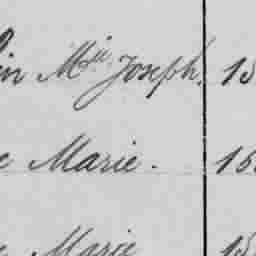 in Mie Joseph. 15
e Marie. 15
e Marie 15